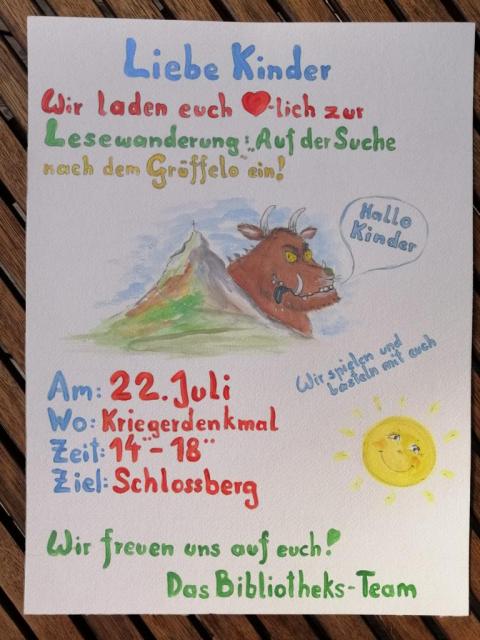 Liebe Kinder
Wir laden euch ❤-lich zur
Lesewanderung: „Auf der Suche
nach dem Grüffelo" ein!
Hallo
Kinder
Wir spielen und
basteln mit euch
Am: 22. Juli
Wo: Kriegerdenkmal
Zeit: 14°° - 18°°
Ziel: Schlossberg
Wir freuen uns auf euch!
Das Bibliotheks-Team